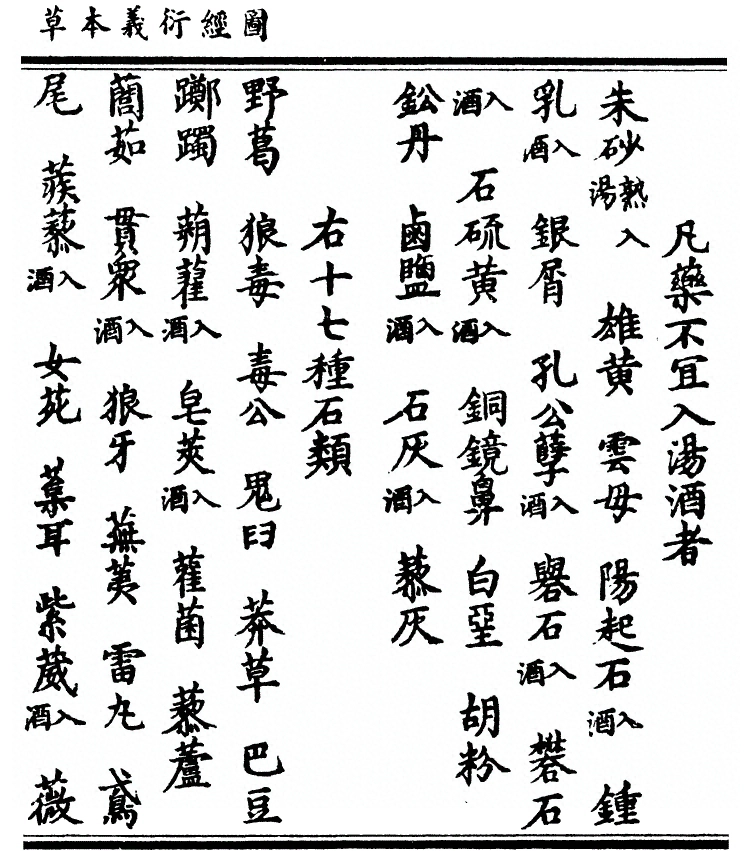 圖經衍義本草
凡藥不宜入湯酒者
朱砂熟湯入 雄黃 雲母 陽起石入酒 鍾
乳入酒 銀屑 孔公孽入酒 礜石入酒 礬石
入酒 石硫黃入酒 銅鏡鼻 白堊 胡粉
鈆丹 鹵鹽入酒 石灰入酒 藜灰
右十七種石類
野葛 狼毒 毒公 鬼臼 莽草 巴豆
躑躅 蒴藋入酒 皂莢入酒 雚菌 藜蘆
藘茹 貫衆入酒 狼牙 蕪荑 雷丸 鳶
尾 蒺藜入酒 女菀 葈耳 紫葳入酒 薇